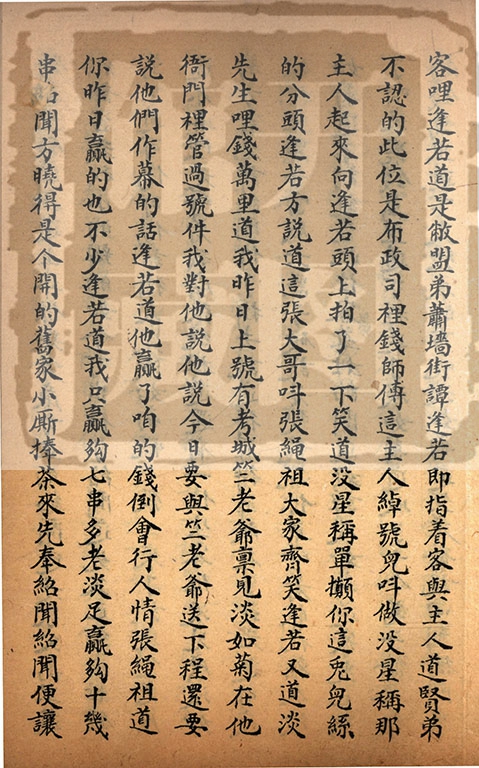 客哩逢若道是敝盟弟蕭墻街譚逢若即指着客與主人道賢弟
不認的此位是布政司裡錢師傅這主人綽號兒呌做没星稱那
主人起來向逢若頭上拍了一下笑道没星稱單攧你這兎兒絲
的分頭逢若方説道這張大哥呌張繩祖大家齊笑逢若又道淡
先生哩錢萬里道我昨日上號有考城竺老爺禀見淡如菊在他
衙門裡管過號件我對他説他説今日要與竺老爺送下程還要
説他們作幕的話逢若道他贏了咱的錢倒會行人情張繩祖道
你昨日贏的也不少逢若道我只贏夠七串多老淡足贏夠十幾
串紹聞方曉得是个開的舊家小厮捧茶來先奉紹聞紹聞便讓